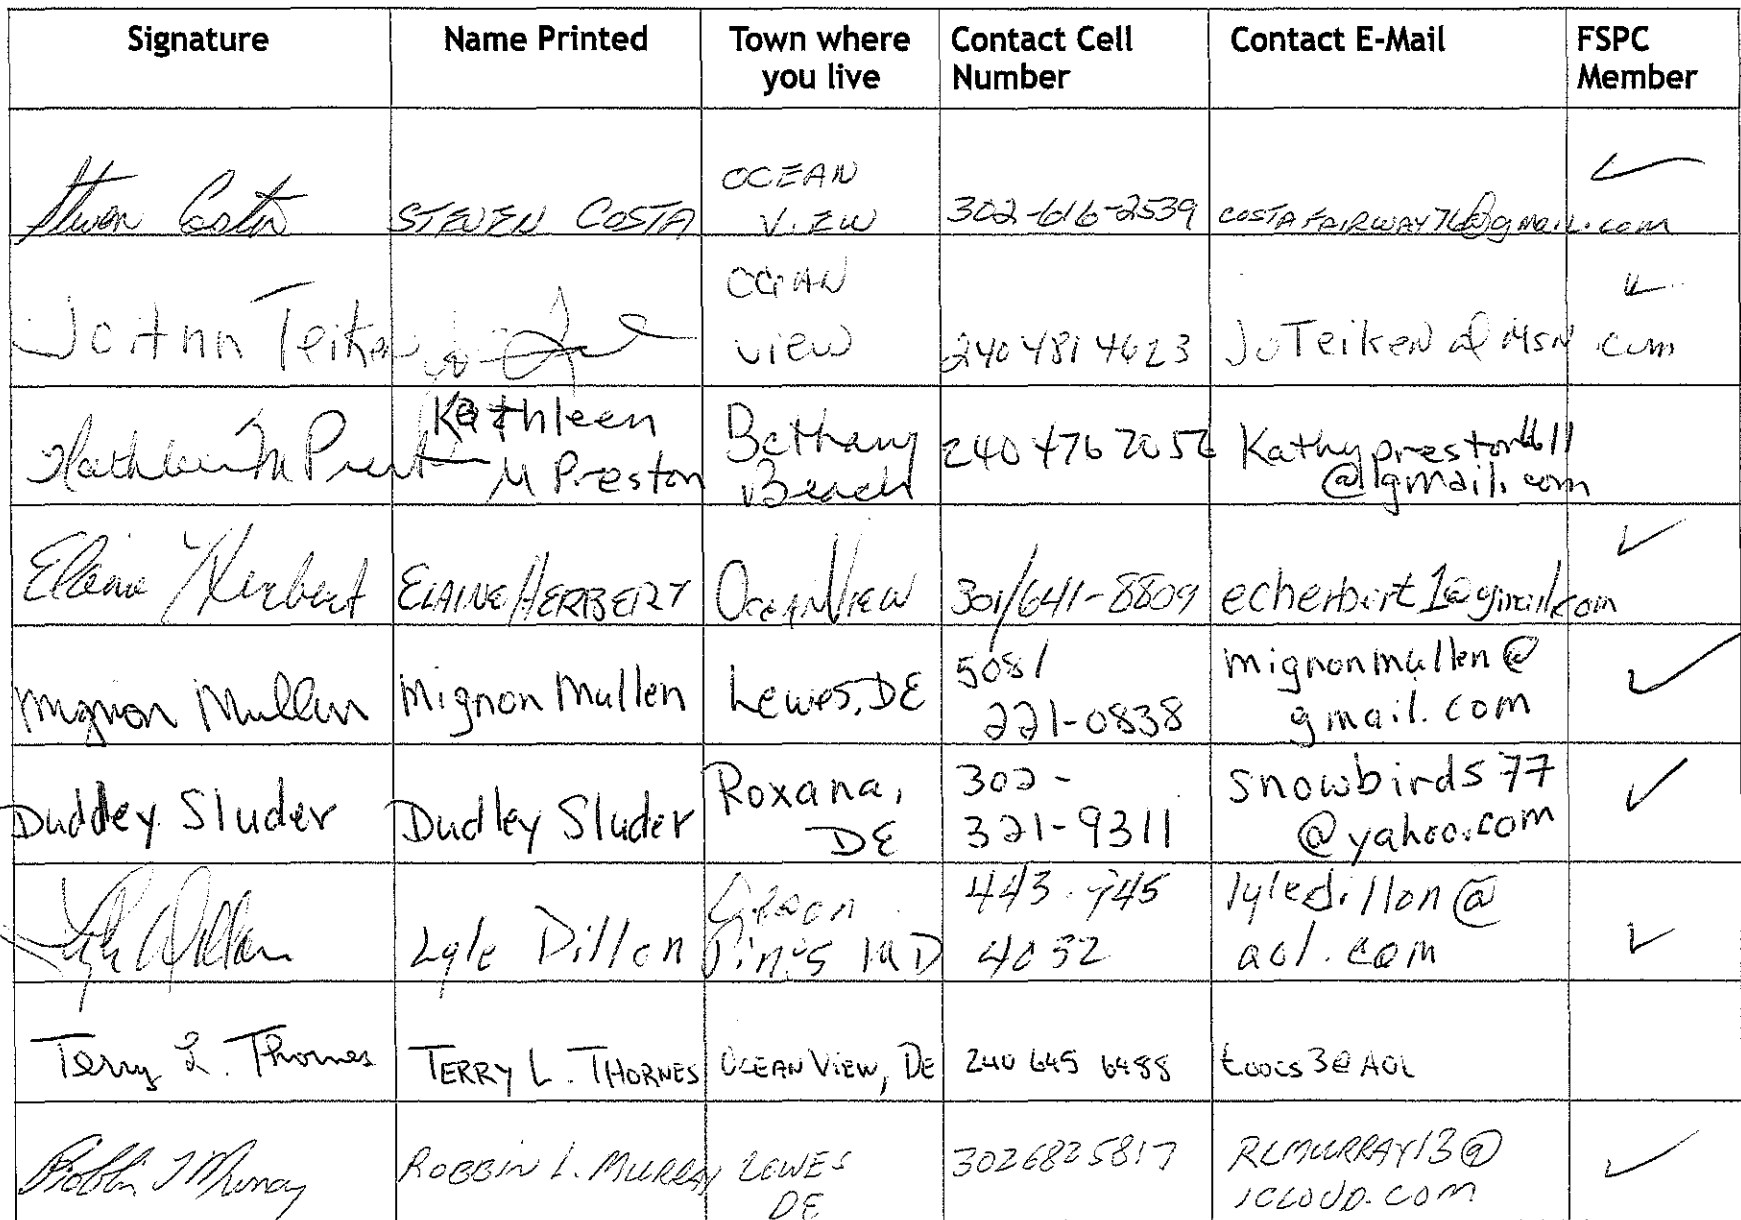 Signature Name Printed Town where you live Contact Cell Number Contact E-Mail FSPC Member
Steven Costa STEVEN COSTA OCEAN VIEW 302-616-2539 COSTAFAIRWAY76@gmail.com ✓
JoAnn Teiken OCEAN View 240 481 4623 JoTeiken@MSN.com ✓
Kathleen M Preston Kathleen M Preston Bethany Beach 240 476 2052 Kathypreston611@gmail.com
Elaine Herbert ELAINE HERBERT OCEAN VIEW 301/641-8809 echerbert1@gmail.com ✓
Mignon Mullen Mignon Mullen Lewes, DE 508/221-0838 mignonmullen@gmail.com ✓
Duddey Sluder Dudley Sluder Roxana, DE 302-321-9311 snowbirds77@yahoo.com ✓
Lyle Dillon Lyle Dillon Ocean Pines MD 443-745 4032 lyledillon@aol.com ✓
Terry L. Thornes TERRY L. THORNES OCEAN VIEW, DE 240 645 6488 toocs3@AOL
Robbin L Murray ROBBIN L. MURRAY LEWES DE 3026825817 RLMURRAY13@ICLOUD.COM ✓